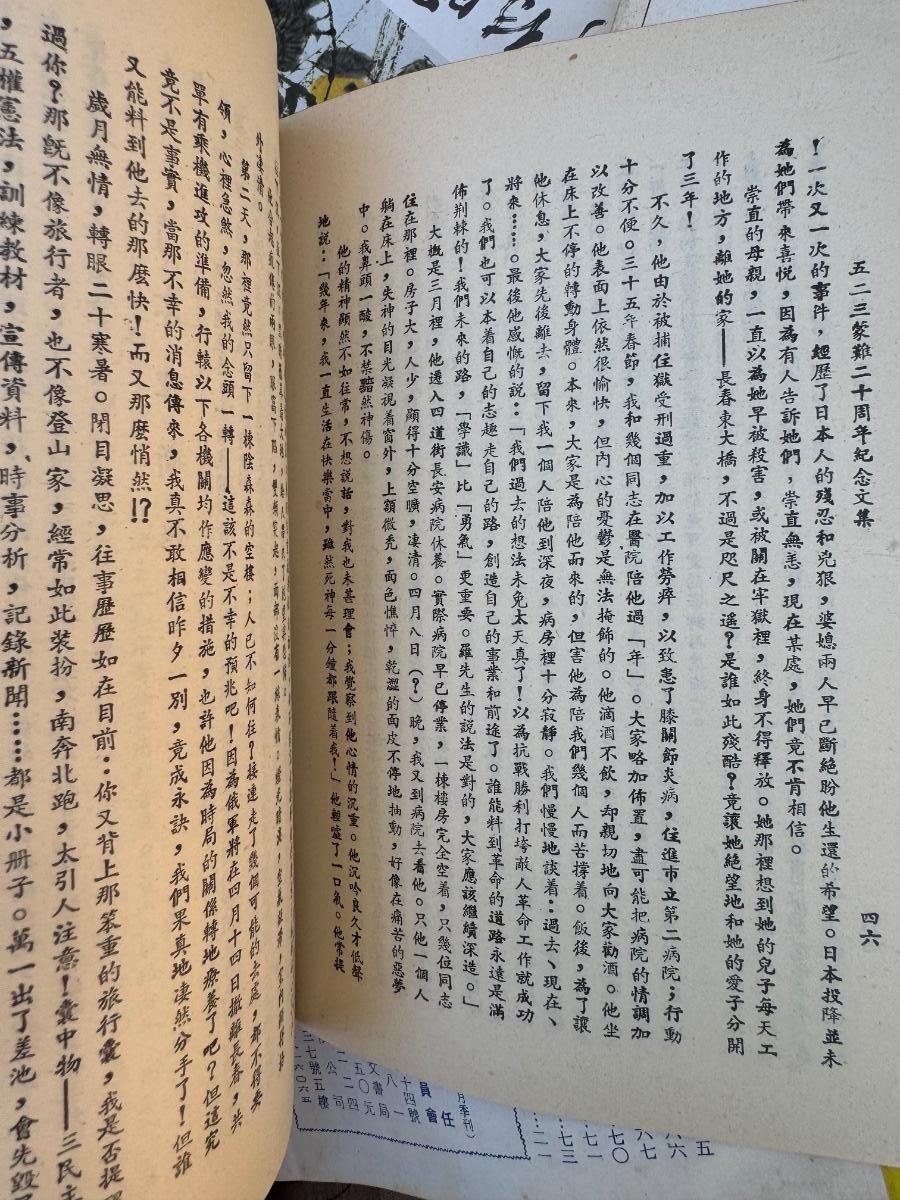 五二三蒙難二十周年紀念文集
四六
！一次又一次的事件，經歷了日本人的殘忍和兇狠，婆媳兩人早已斷絕盼他生還的希望。日本投降並未
為她們帶來喜悅，因為有人告訴她們，崇直無恙，現在某處，她們竟不肯相信。
崇直的母親，一直以為她早被殺害，或被關在牢獄裡，終身不得釋放。她那裡想到她的兒子每天工
作的地方，離她的家——長春東大橋，不過是咫尺之遙？是誰如此殘酷？竟讓她絕望地和她的愛子分開
了三年！
不久，他由於被捕住獄受刑過重，加以工作勞瘁，以致患了膝關節炎病，住進市立第二病院；行動
十分不便。三十五年春節，我和幾個同志在醫院陪他過「年」。大家略加佈置，盡可能把病院的情調加
以改善。他表面上依然很愉快，但內心的憂鬱是無法掩飾的。他滴酒不飲，却親切地向大家勸酒。他坐
在床上不停的轉動身體。本來，大家是為陪他而來的，但害他為陪我們幾個人而苦撐着。飯後，為了讓
他休息，大家先後離去，留下我一個人陪他到深夜，病房裡十分寂靜。我們慢慢地談着：過去、現在、
將來……。最後他感慨的說：「我們過去的想法未免太天真了！以為抗戰勝利打垮敵人革命工作就成功
了。我們也可以本着自己的志趣走自己的路，創造自己的事業和前途了。誰能料到革命的道路永遠是滿
佈荆棘的！我們未來的路，「學識」比「勇氣」更重要。羅先生的說法是對的，大家應該繼續深造。」
大概是三月裡，他遷入四道街長安病院休養。實際病院早已停業，一棟樓房完全空着，只幾位同志
住在那裡。房子大，人少，顯得十分空曠，凄清。四月八日（？）晚，我又到病院去看他。只他一個人
躺在床上，失神的目光凝視着窗外，上額微禿，面色憔悴，乾澀的面皮不停地抽動，好像在痛苦的惡夢
中。我鼻頭一酸，不禁黯然神傷。
他的精神顯然不如往常，不想說話，對我也未甚理會；我覺察到他心情的沉重。他沉吟良久才低聲
地說：「幾年來，我一直生活在快樂當中，雖然死神每一分鐘都跟隨着我！」他輕噓了一口氣。他常提
外凄清。
第二天，那裡竟然只留下一棟陰森森的空樓；人已不知何往？接連走了幾個可能的去處，都不得要
領，心裡急然，忽然我的念頭一轉——這該不是不幸的預兆吧！因為俄軍將在四月十四日撤離長春，共
單有乘機進攻的準備，行轅以下各機關均作應變的措施，也許他因為時局的關係轉地療養了吧？但這究
竟不是事實，當那不幸的消息傳來，我真不敢相信昨夕一別，竟成永訣，我們果真地淒然分手了！但誰
又能料到他去的那麼快！而又那麼悄然!?
歲月無情，轉眼二十寒暑。閉目凝思，往事歷歷如在目前：你又背上那笨重的旅行囊，我是否提
過你？那既不像旅行者，也不像登山家，經常如此裝扮，南奔北跑，太引人注意！囊中物——三民主
，五權憲法，訓練教材，宣傳資料，時事分析，記錄新聞……都是小冊子。萬一出了差池，會先毀